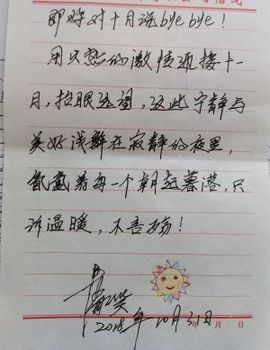 即将对十月说bye bye!
用火热的激情迎接十一
月,抬眼远望,这些宁静与
美好浅醉在寂静的夜里,
氤氲着每一个朝起暮落,只
诉温暖,不言忧伤!
2018年10月31日
年 月 日